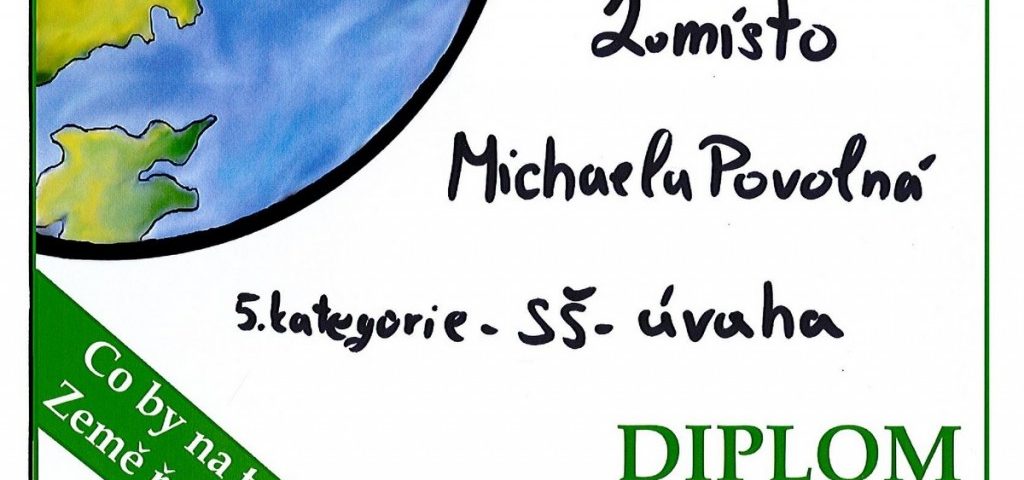 2. místo
Michaela Povolná
5. kategorie - SŠ - úvaha
Co by na
Země
DIPLOM